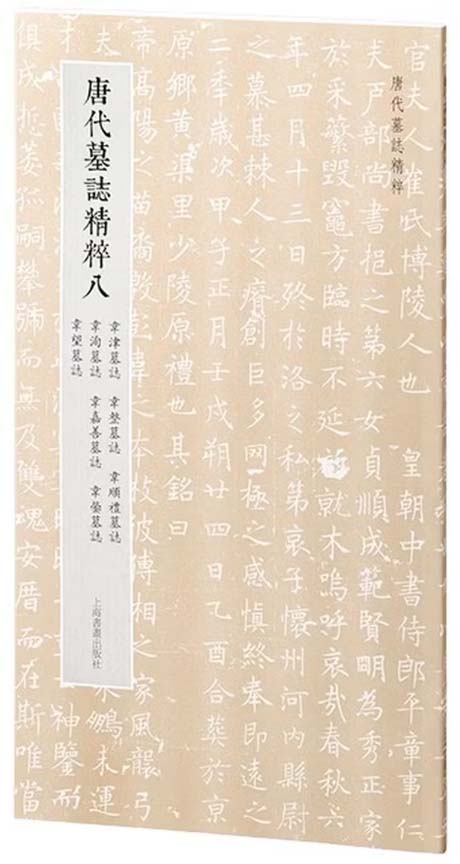 唐代墓誌精粹
官夫人崔氏博陵人也 皇朝中書侍郎平章事仁
夫戶部尚書挹之第六女貞順成範賢明為秀正家
於采蘩毀竈方臨時不延 就木嗚呼哀哉春秋六
年四月十三日終於洛之私第哀子懷州河內縣尉
之慕甚棘人之瘠創巨多网極之感慎終奉即遠之
二年歲次甲子正月壬戌朔廿四日乙酉合葬於京
原鄉黃渠里少陵原禮也其銘曰
帝高陽之苗裔殷彭韋之本枝彼傅相之家風襲弓
夫 未運
神鑒而
俱成 孤嗣攀號而無及雙魂安厝而在斯唯當
唐代墓誌精粹八
韋津墓誌 韋整墓誌 韋順禮墓誌
韋洵墓誌 韋嘉善墓誌 韋 墓誌
韋望墓誌
上海書畫出版社